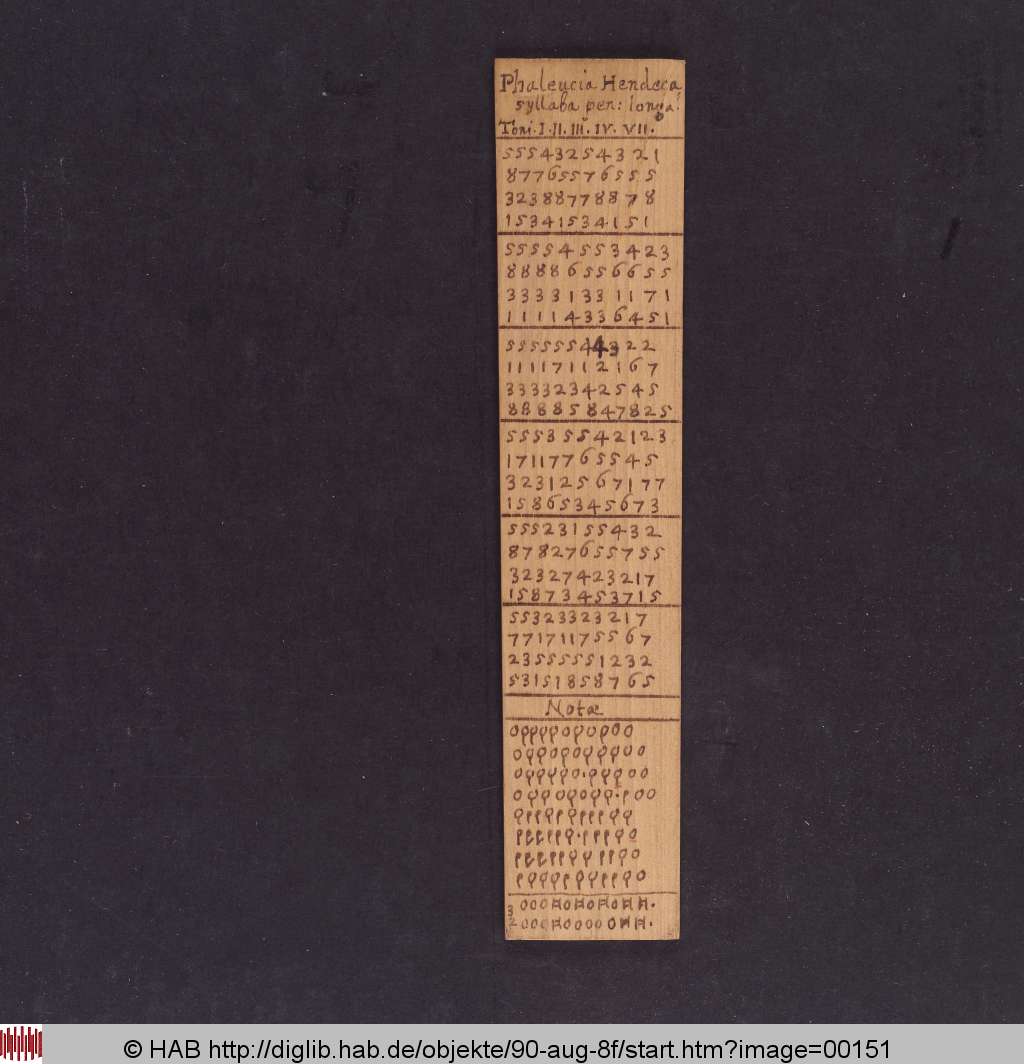 Phaleucia Hendeca
syllaba pen: longa.
Toni. I. II. III. IV. VII.
55543254321
87765576555
32388778878
15341534151
55554553423
88886556655
33331331171
11114336451
555555443 22
11117112167
33332342545
888858478 25
55535542123
17117765545
323125671 77
15865345673
55523155432
87827655755
32327423217
15873453715
55323323217
77171175567
23555551232
53151858765
Notæ
3
2
© HAB http://diglib.hab.de/objekte/90-aug-8f/start.htm?image=00151